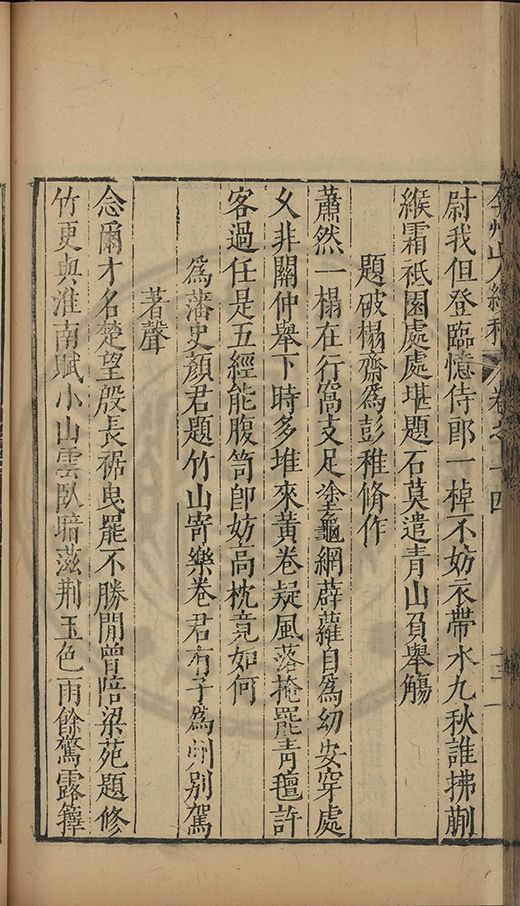 弇州山人續稿 卷之十四
尉我但登臨憶侍郎一棹不妨衣帶水九秋誰拂蒯
緱霜祇園處處堪題石莫遣青山負舉觴
題破榻齋爲彭稚脩作
蕭然一榻在行窩支足塗龜網薜蘿自爲幼安穿處
久非關仲舉下時多堆來黃卷疑風落掩罷青氊許
客過任是五經能腹笥卽妨高枕竟如何
爲藩史顏君題竹山寄樂卷君有子爲州別駕
著聲
念爾才名楚望殷長裾曳罷不勝閒曾陪梁苑題修
竹更與淮南賦小山雲臥暗滋荆玉色雨餘驚露籜